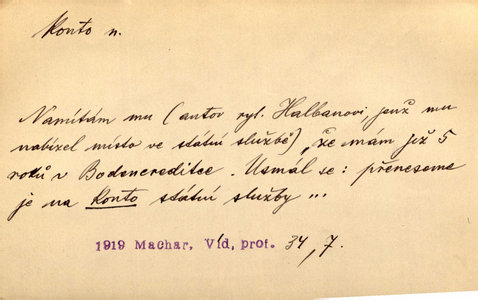 Konto n.
Namítám mu (autor ryt. Halbanovi, jenž mu
nabízel místo ve státní službě), že mám již 5
roků v Bodencreditce. Usmál se: přeneseme
je na konto státní služby ...
1919 Machar, Víd, prof. 34, 7.